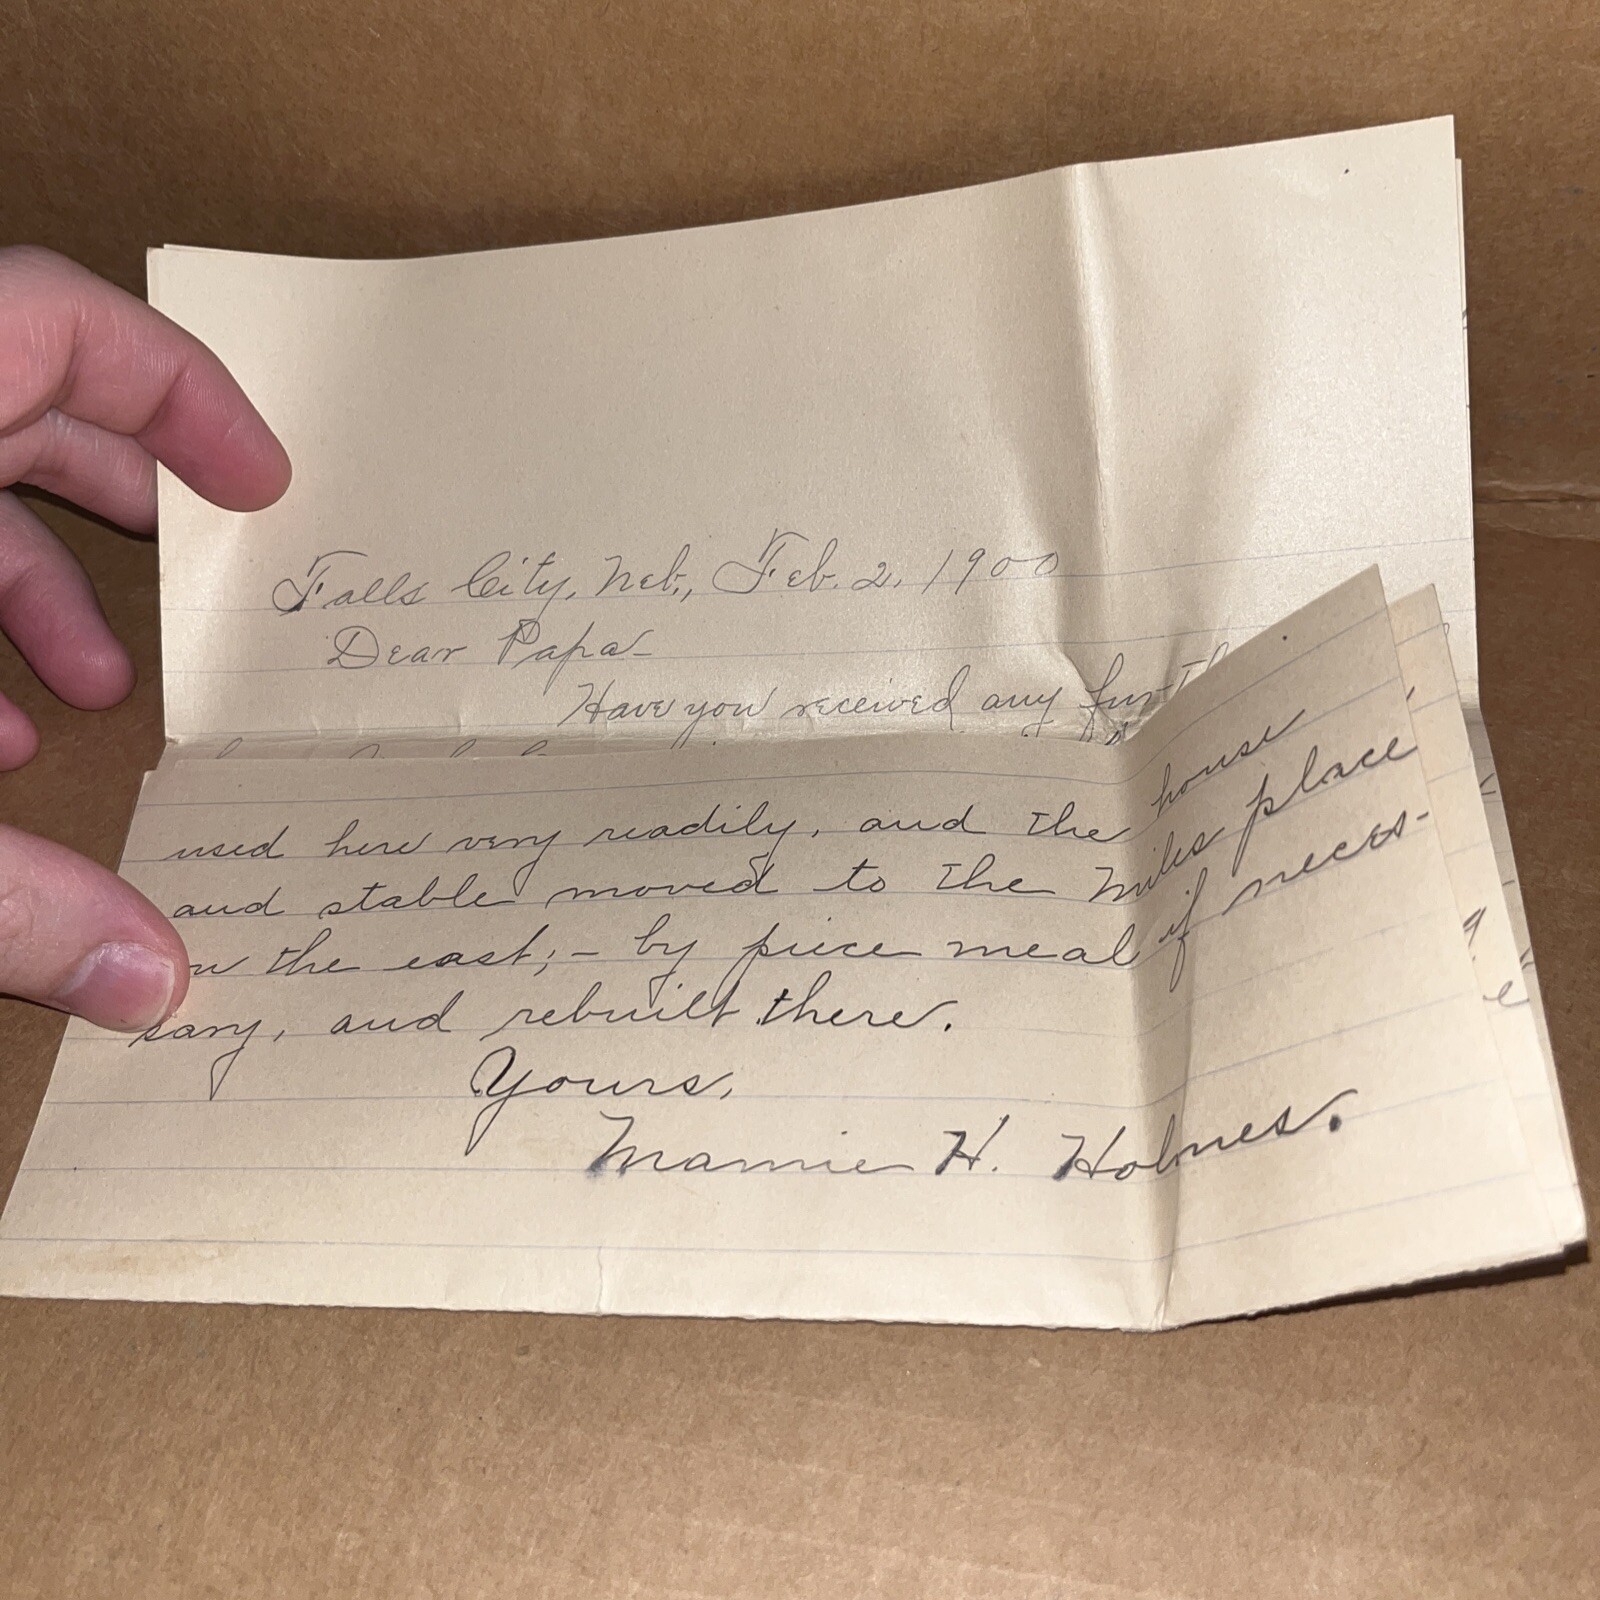 Falls City, Neb., Feb. 2, 1900
Dear Papa-
Have you received any
used here very readily, and the house
and stable moved to the Miles place
the east;- by piece meal if neces-
sary, and rebuilt there.
Yours,
Mamie H. Holmes.